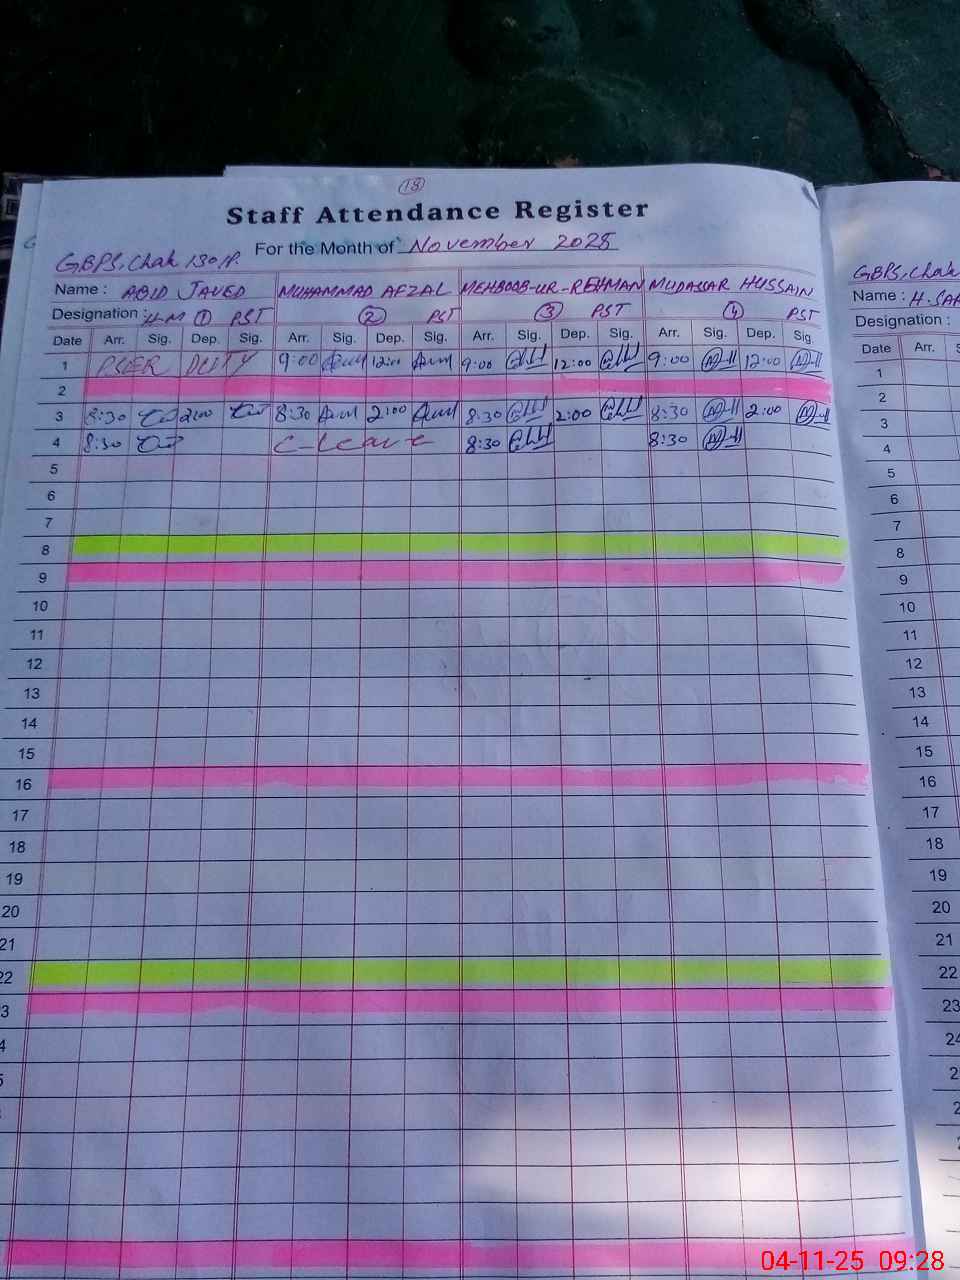 18
Staff Attendance Register
For the Month of November 2025
GBPS, Chak 130/P.
Name : ABID JAVED MUHAMMAD AFZAL MEHBOOB-UR-REHMAN MUDASSAR HUSSAIN
Designation : H-M 1 PST 2 PST 3 PST 4 PST
Date Arr. Sig. Dep. Sig. Arr. Sig. Dep. Sig. Arr. Sig. Dep. Sig. Arr. Sig. Dep. Sig.
1 PSER DUTY 9:00 12:00 9:00 12:00 9:00 12:00
2
3 8:30 2:00 8:30 2:00 8:30 2:00 8:30 2:00
4 8:30 C-Leave 8:30 8:30
5
6
7
8
9
10
11
12
13
14
15
16
17
18
19
20
21
22
3
4
GBPS, Chak
Name : H.
Designation :
Date Arr.
1
2
3
4
5
6
7
8
9
10
11
12
13
14
15
16
17
18
19
20
21
22
23
24
2
2
04-11-25 09:28